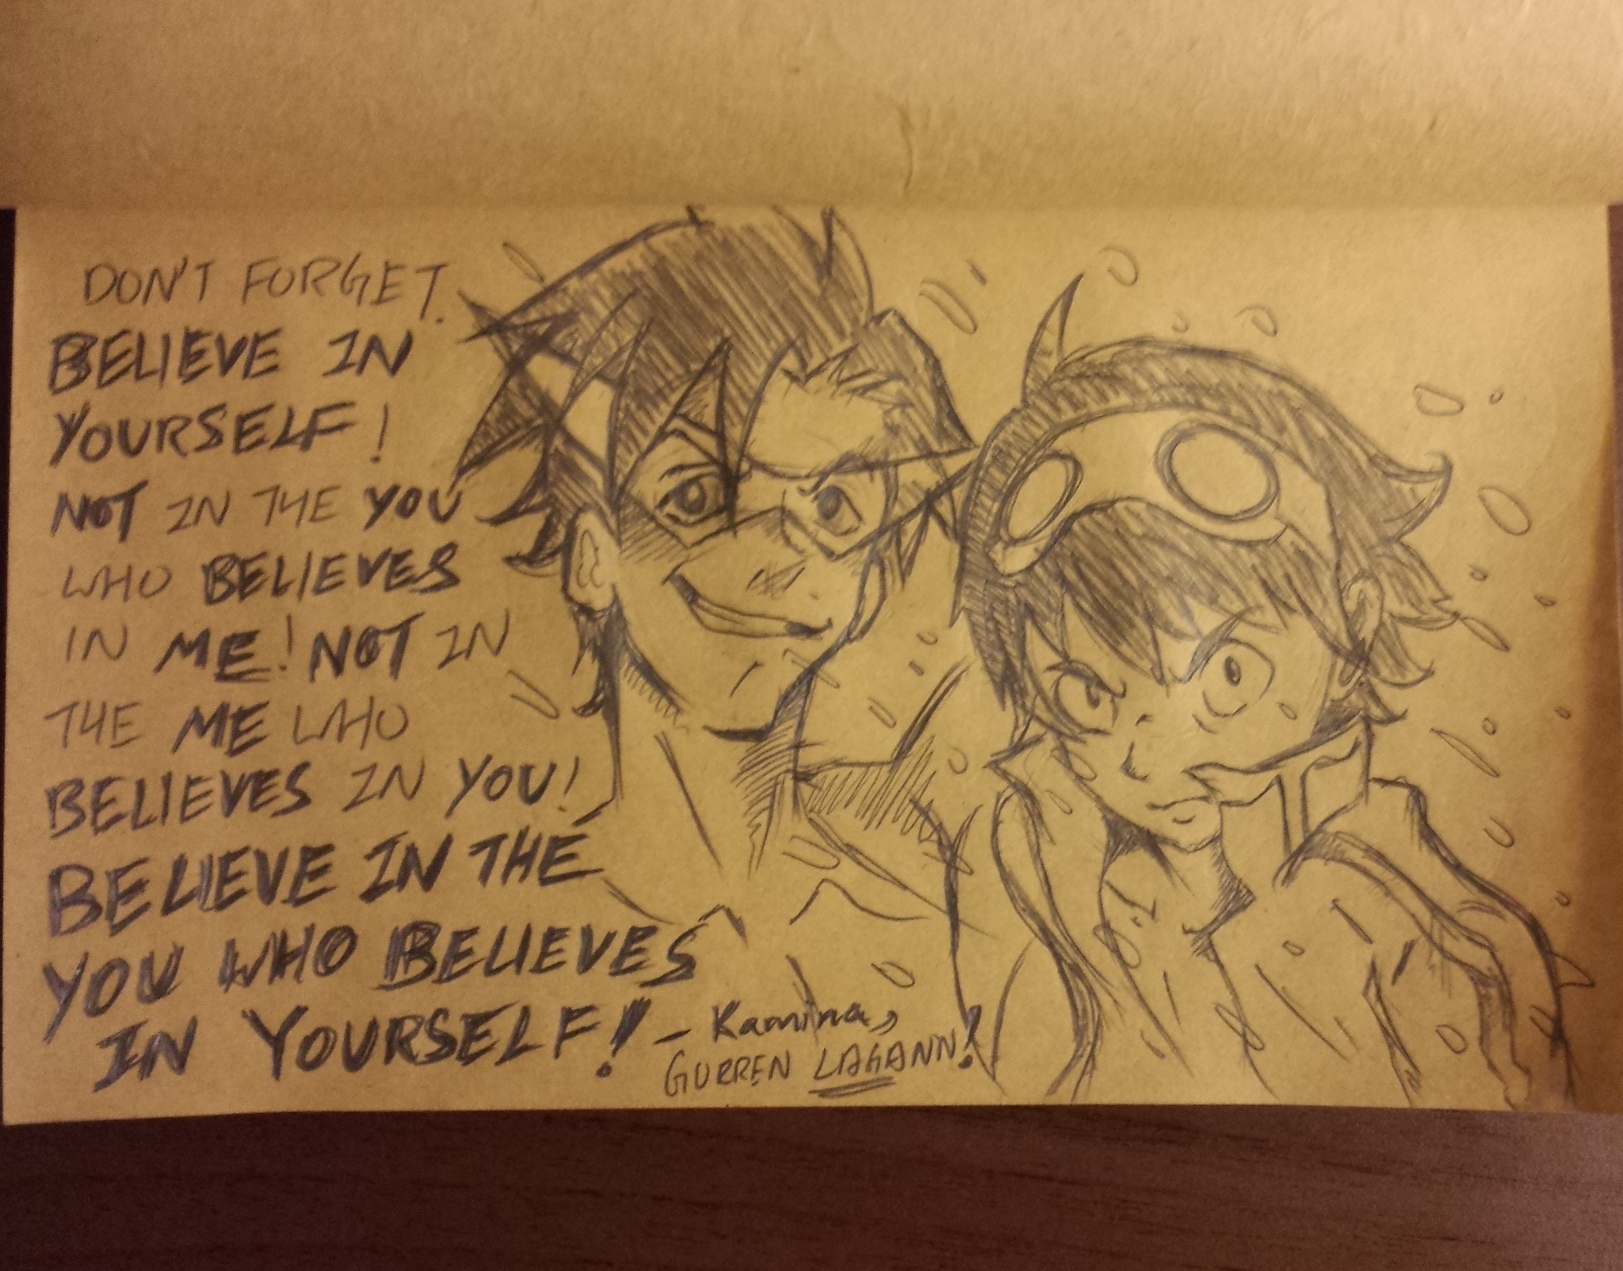 DON'T FORGET.
BELIEVE IN
YOURSELF!
NOT IN THE YOU
WHO BELIEVES
IN ME! NOT IN
THE ME WHO
BELIEVES IN YOU!
BELIEVE IN THE
YOU WHO BELIEVES
IN YOURSELF! - Kamina,
GURREN LAGANN!